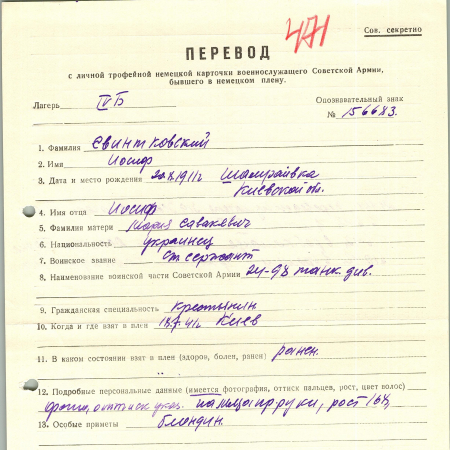 471
Сов. секретно
ПЕРЕВОД
с личной трофейной немецкой карточки военнослужащего Советской Армии,
бывшего в немецком плену.
Лагерь IV Б
Опознавательный знак
№ 156683.
1. Фамилия Свинтковский
2. Имя Иосиф
3. Дата и место рождения 20.X.1911г Шамраивка
Киевской об.
4. Имя отца Иосиф
5. Фамилия матери Мария Савакевич
6. Национальность украинец
7. Воинское звание Ст. сержант
8. Наименование воинской части Советской Армии 24-98 танк. див.
9. Гражданская специальность крестьянин
10. Когда и где взят в плен 18.7.41г Киев
11. В каком состоянии взят в плен (здоров, болен, ранен) ранен.
12. Подробные персональные данные (имеется фотография, оттиск пальцев, рост, цвет волос)
фото, оттиск указ. пальца пр. руки, рост 168,
13. Особые приметы блондин.